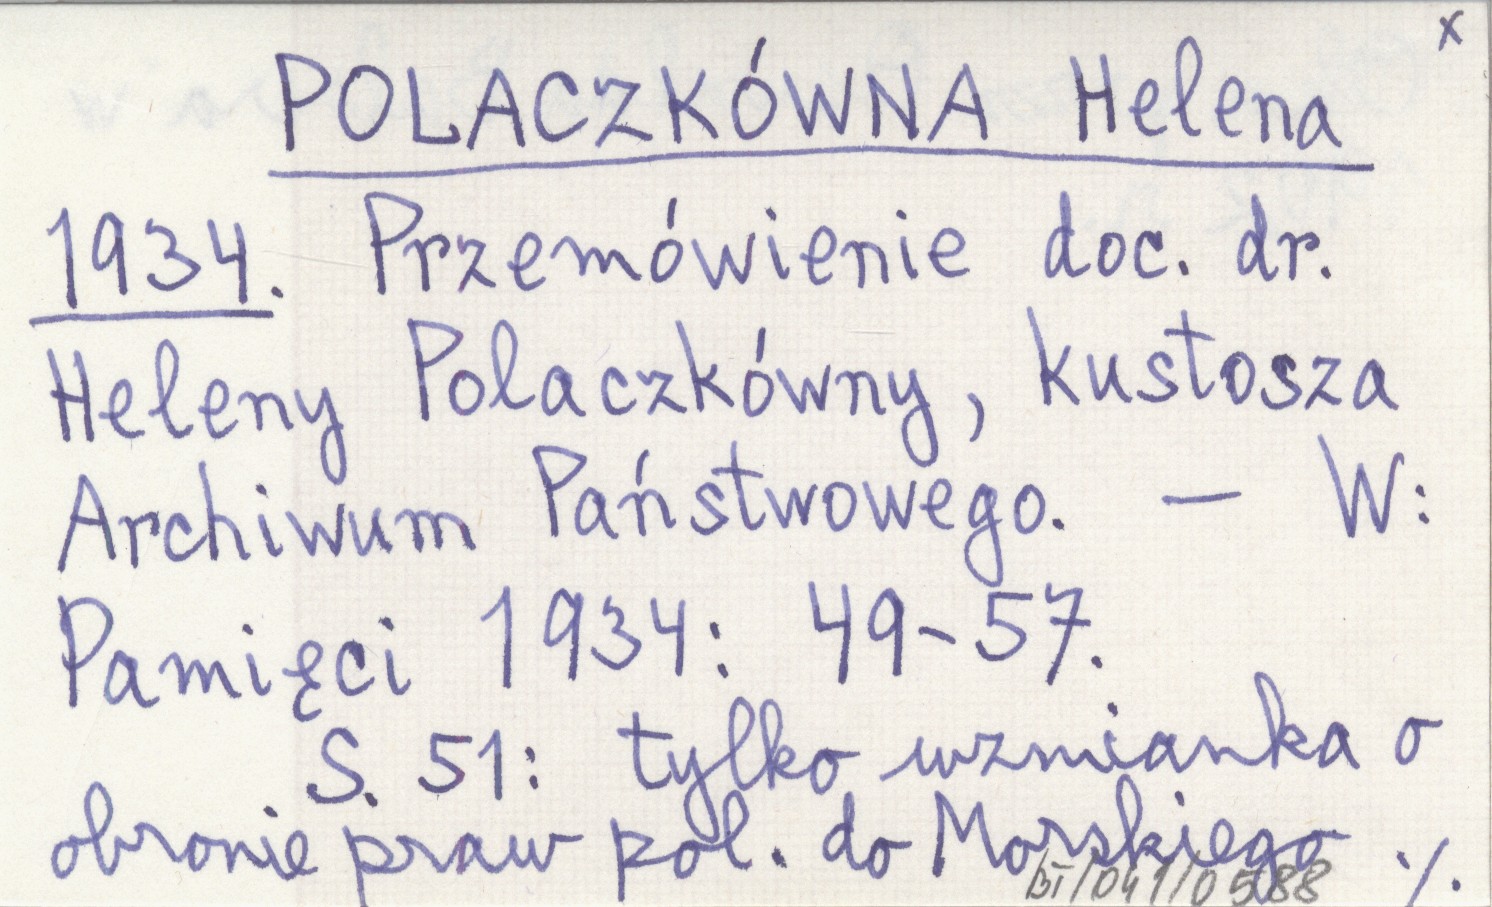 x
POLACZKÓWNA Helena
1934. Przemówienie doc. dr.
Heleny Polaczkówny, kustosza
Archiwum Państwowego. — W:
Pamięci 1934: 49-57.
S. 51: tylko wzmianka o
obronie praw pol. do Morskiego ./.
bī/041/0588